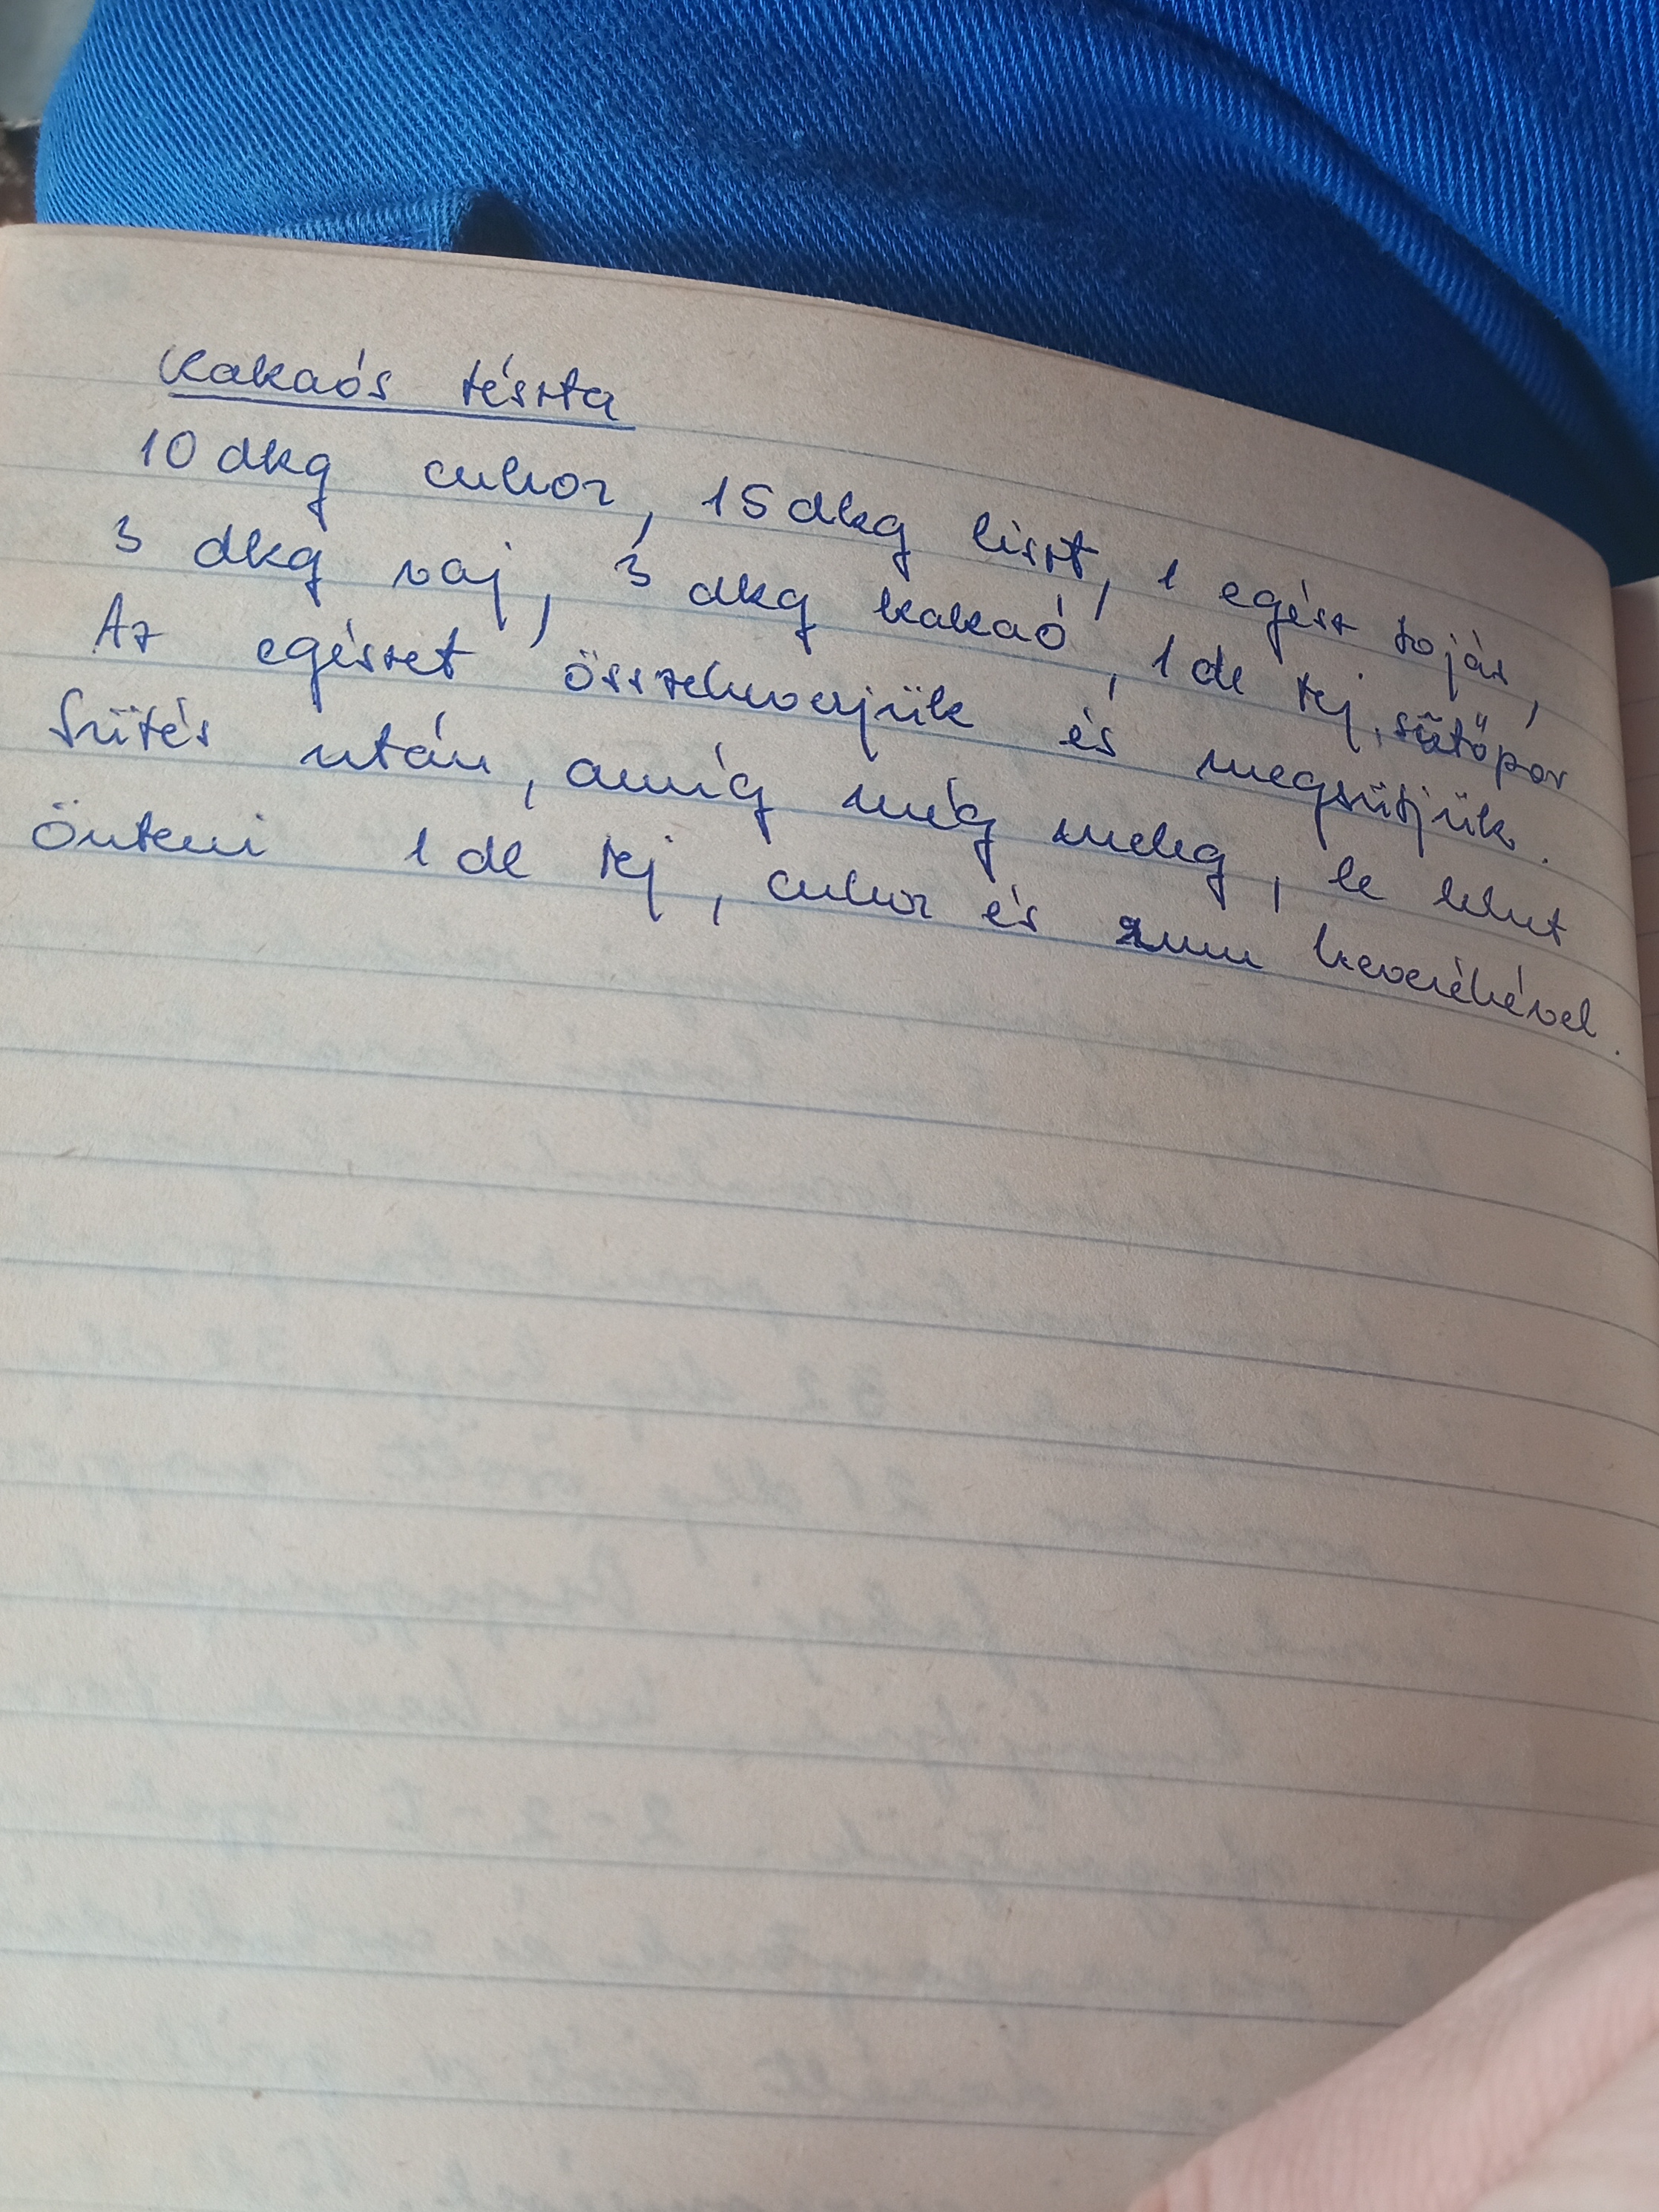 Kakaós tészta
10 dkg cukor, 15 dkg liszt, 1 egész tojás,
3 dkg vaj, 3 dkg kakaó, 1 dl tej, sütőpor
Az egészet összekverjük és megsütjük.
Sütés után, amíg még meleg, le lehet
önteni 1 dl tej, cukor és rum keverékével.